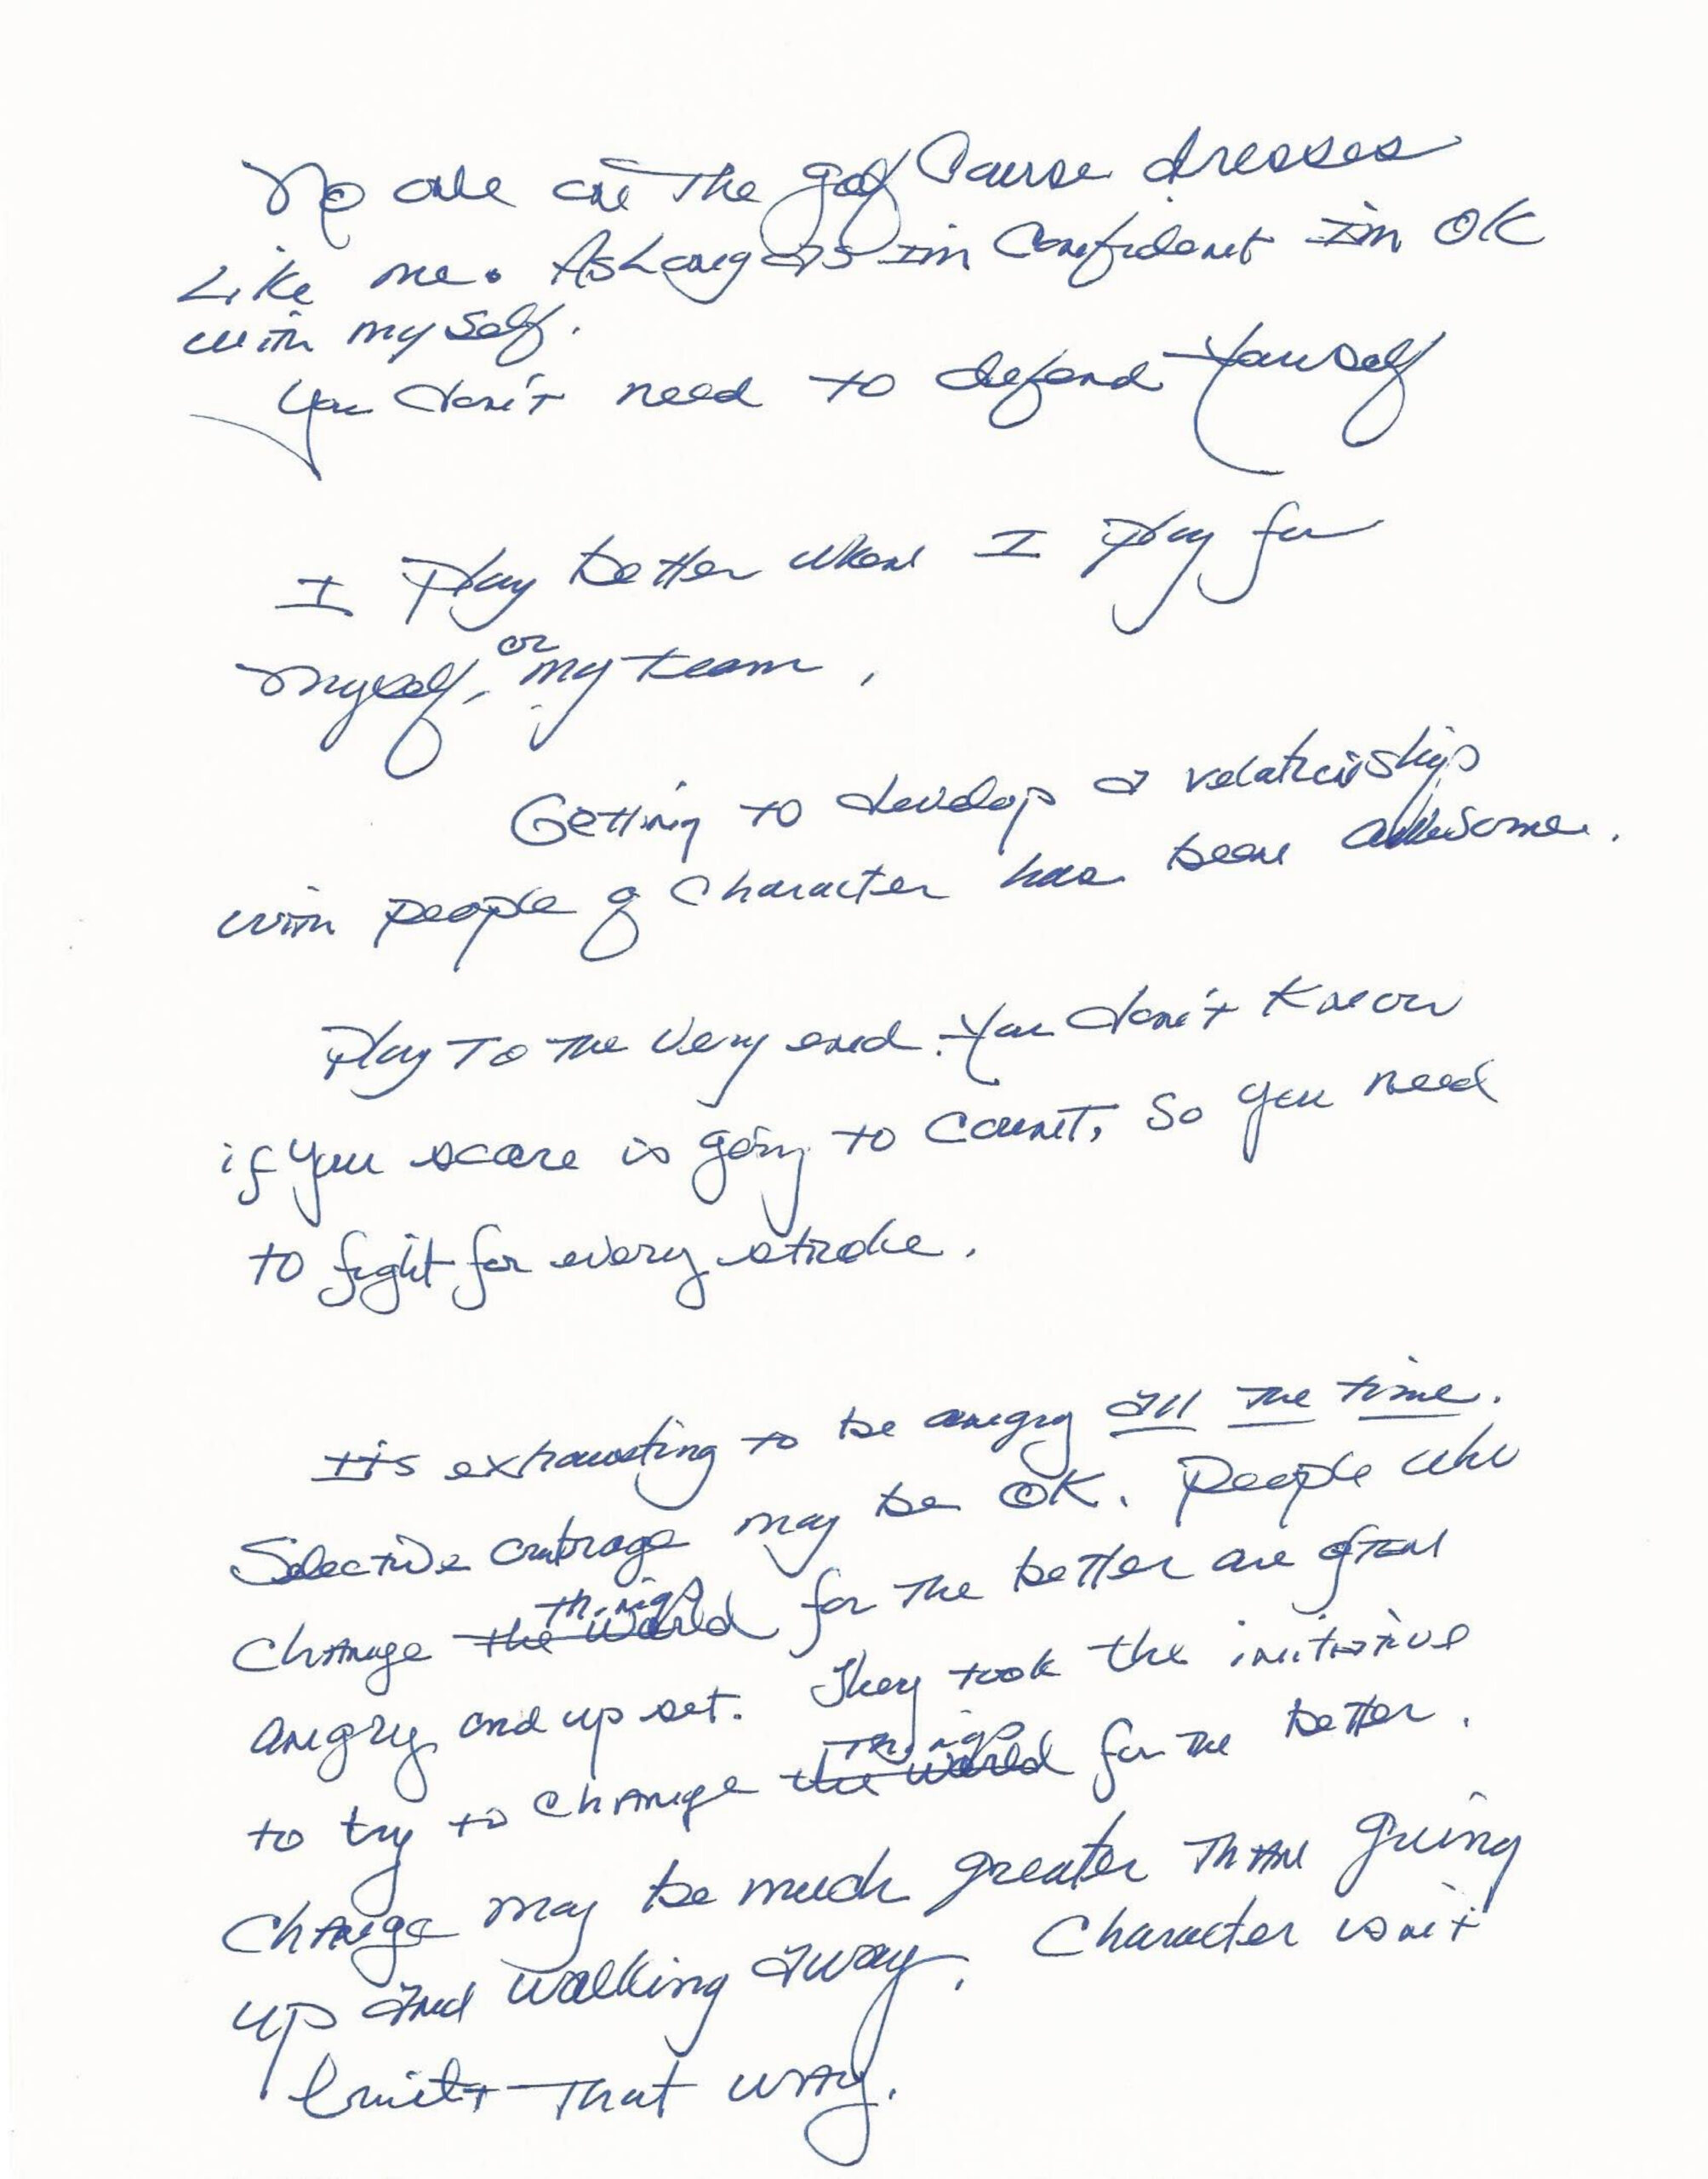 No one on the golf Course dresses
Like me. As Long as I'm Confident I'm OK
with my self.
You don't need to defend Yourself
I Play better when I play for
myself, or my team,
Getting to develop a relationship
with people of Character has been awesome.
Play To The Very end. You don't Know
if you score is going to Count, So you need
to fight for every stroke.
It's exhausting to be angry all the time.
Selective outrage may be OK. People who
Change ~~the World~~ things for the better are often
angry and up set. They took the initiative
to try to change ~~the world~~ Things for the better.
Change may be much greater Than giving
up and walking away. Character isn't
built That way.